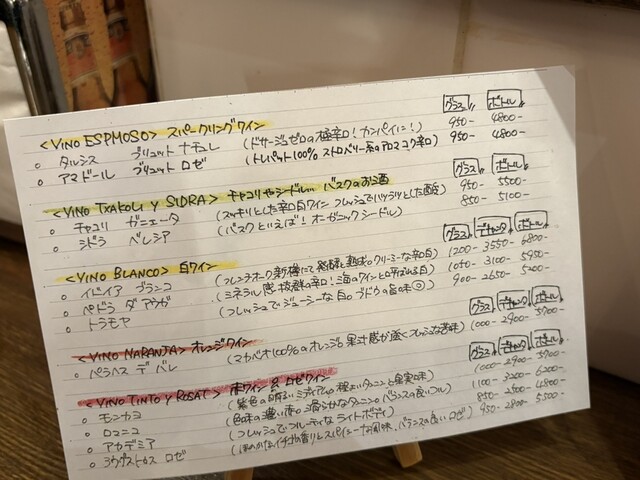 <VINO ESPMOSO> スパークリングワイン グラス ボトル
○ タルシス ブリュット ナチュレ (ドサージュゼロの極辛口! カンパイに!) 950- 4800-
○ アマドール ブリュット ロゼ (トレパット100% ストロベリー系のアロマコク辛口) 950- 4800-
<VINO TXAKOLI Y SIDRA> チャコリやシードル... バスクのお酒 グラス ボトル
○ チャコリ ガニェータ (スッキリとした辛口白ワイン フレッシュでハツラツとした酸味) 950- 5500-
○ シドラ ベレシア (バスクといえば! オーガニックシードル) 850- 5100-
<VINO BLANCO> 白ワイン グラス デキャンタ ボトル
○ イドイア ブランコ (フレンチオーク新樽にて発酵 熟成のクリーミーな辛口) 1200- 3550- 6800-
○ ペドラ ダ アウガ (ミネラル感 抜群の辛口! 海のワインと呼ばれる) 1050- 3100- 5950-
○ トラモヤ (フレッシュでジューシーな白 ブドウの旨味◎) 900- 2650- 5200-
<VINO NARANJA> オレンジワイン グラス デキャンタ ボトル
○ ペラヘス デ バレ (マカベオ100%のオレンジ 果汁感が強くフレッシュな苦味) 1000- 2900- 5700-
<VINO TINTO Y ROSAT> 赤ワイン & ロゼワイン グラス デキャンタ ボトル
○ モンカヨ (紫色の明るいミディアム 程よいタンニンと果実味) 1000- 2900- 5700-
○ ロマニコ (色味の濃い赤 滑らかなタンニン バランスの良いフル) 1100- 3200- 6200-
○ アカデミア (フレッシュでフルーティな ライトボディ) 850- 2500- 4800-
○ ロゼ (ほのかなイチゴの香りとスパイシーな風味、バランスの良いロゼ) 950- 2800- 5500-